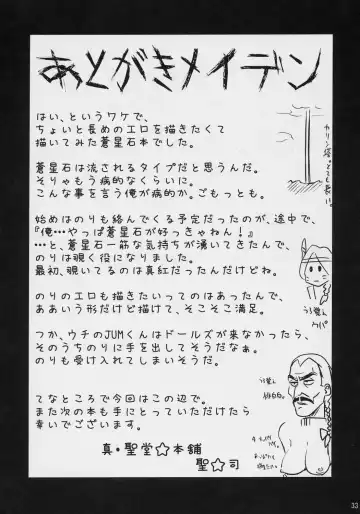 あとがきメイデン
はい、というワケで、
ちょいと長めのエロを描きたくて
描いてみた蒼星石本でした。
蒼星石は流されるタイプだと思うんだ。
そりゃもう病的なくらいに。
こんな事を言う俺が病的か。ごもっとも。
始めはのりも絡んでくる予定だったのが、途中で、
『俺…やっぱ蒼星石が好っきゃねん！』
…と、蒼星石一筋な気持ちが湧いてきたんで、
のりは覗く役になりました。
最初、覗いてるのは真紅だったんだけどね。
のりのエロも描きたいってのはあったんで、
ああいう形だけど描けて、そこそこ満足。
つか、ウチのJUMくんはドールズが来なかったら、
そのうちのりに手を出してそうだなぁ。
のりも受け入れてしまいそうだ。
てなところで今回はこの辺で。
また次の本も手にとっていただけたら
幸いでございます。
真・聖堂☆本舗
聖☆司
カリン塔。とっても長い。
うろ覚え
ウパ
うろ覚え
桃白白。
33